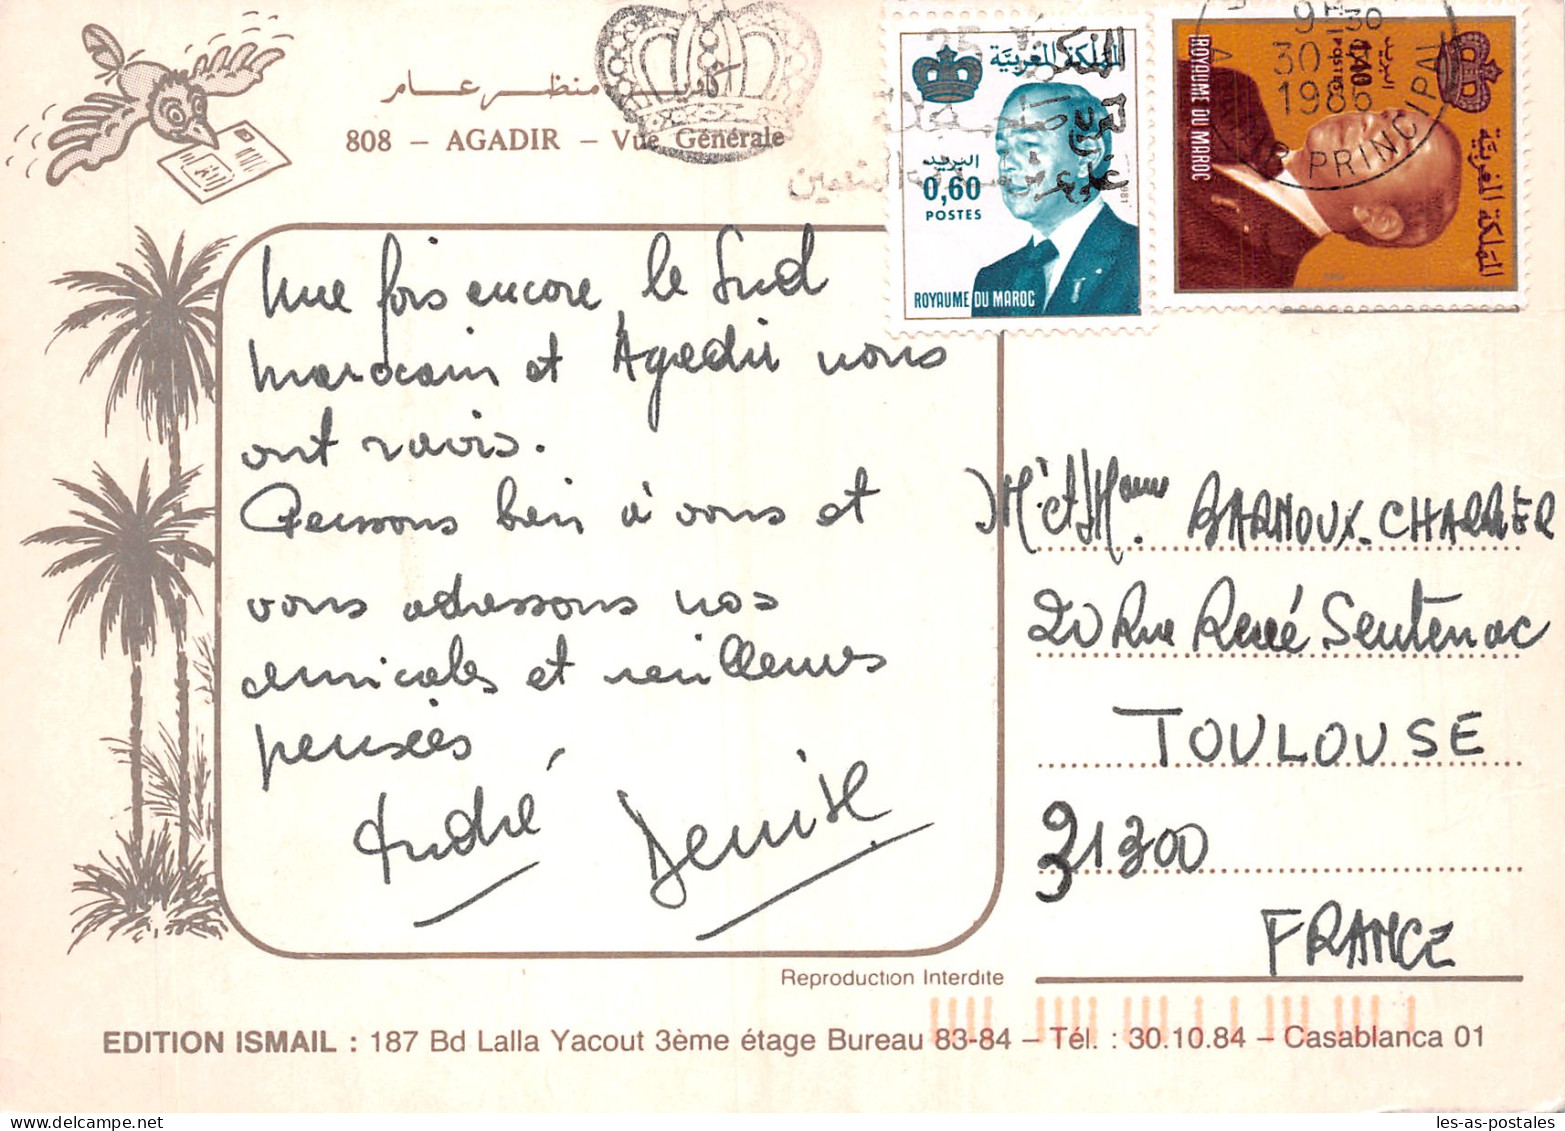 منظر عام
808 – AGADIR – Vue Générale
المملكة المغربية
البريد
0,60
POSTES
1981
ROYAUME DU MAROC
ROYAUME DU MAROC
1,40
البريد
المملكة المغربية
9H30
30
1986
PRINCIPAL
Une fois encore le Sud
marocain et Agadir nous
ont ravis.
Pensons bien à vous et
vous adressons nos
amicales et meilleures
pensées
André Denise
Mr et Mme BARNOUX-CHARRIER
20 Rue René Sentenac
TOULOUSE
31300
FRANCE
Reproduction Interdite
EDITION ISMAIL : 187 Bd Lalla Yacout 3ème étage Bureau 83-84 – Tél. : 30.10.84 – Casablanca 01
les-as-postales